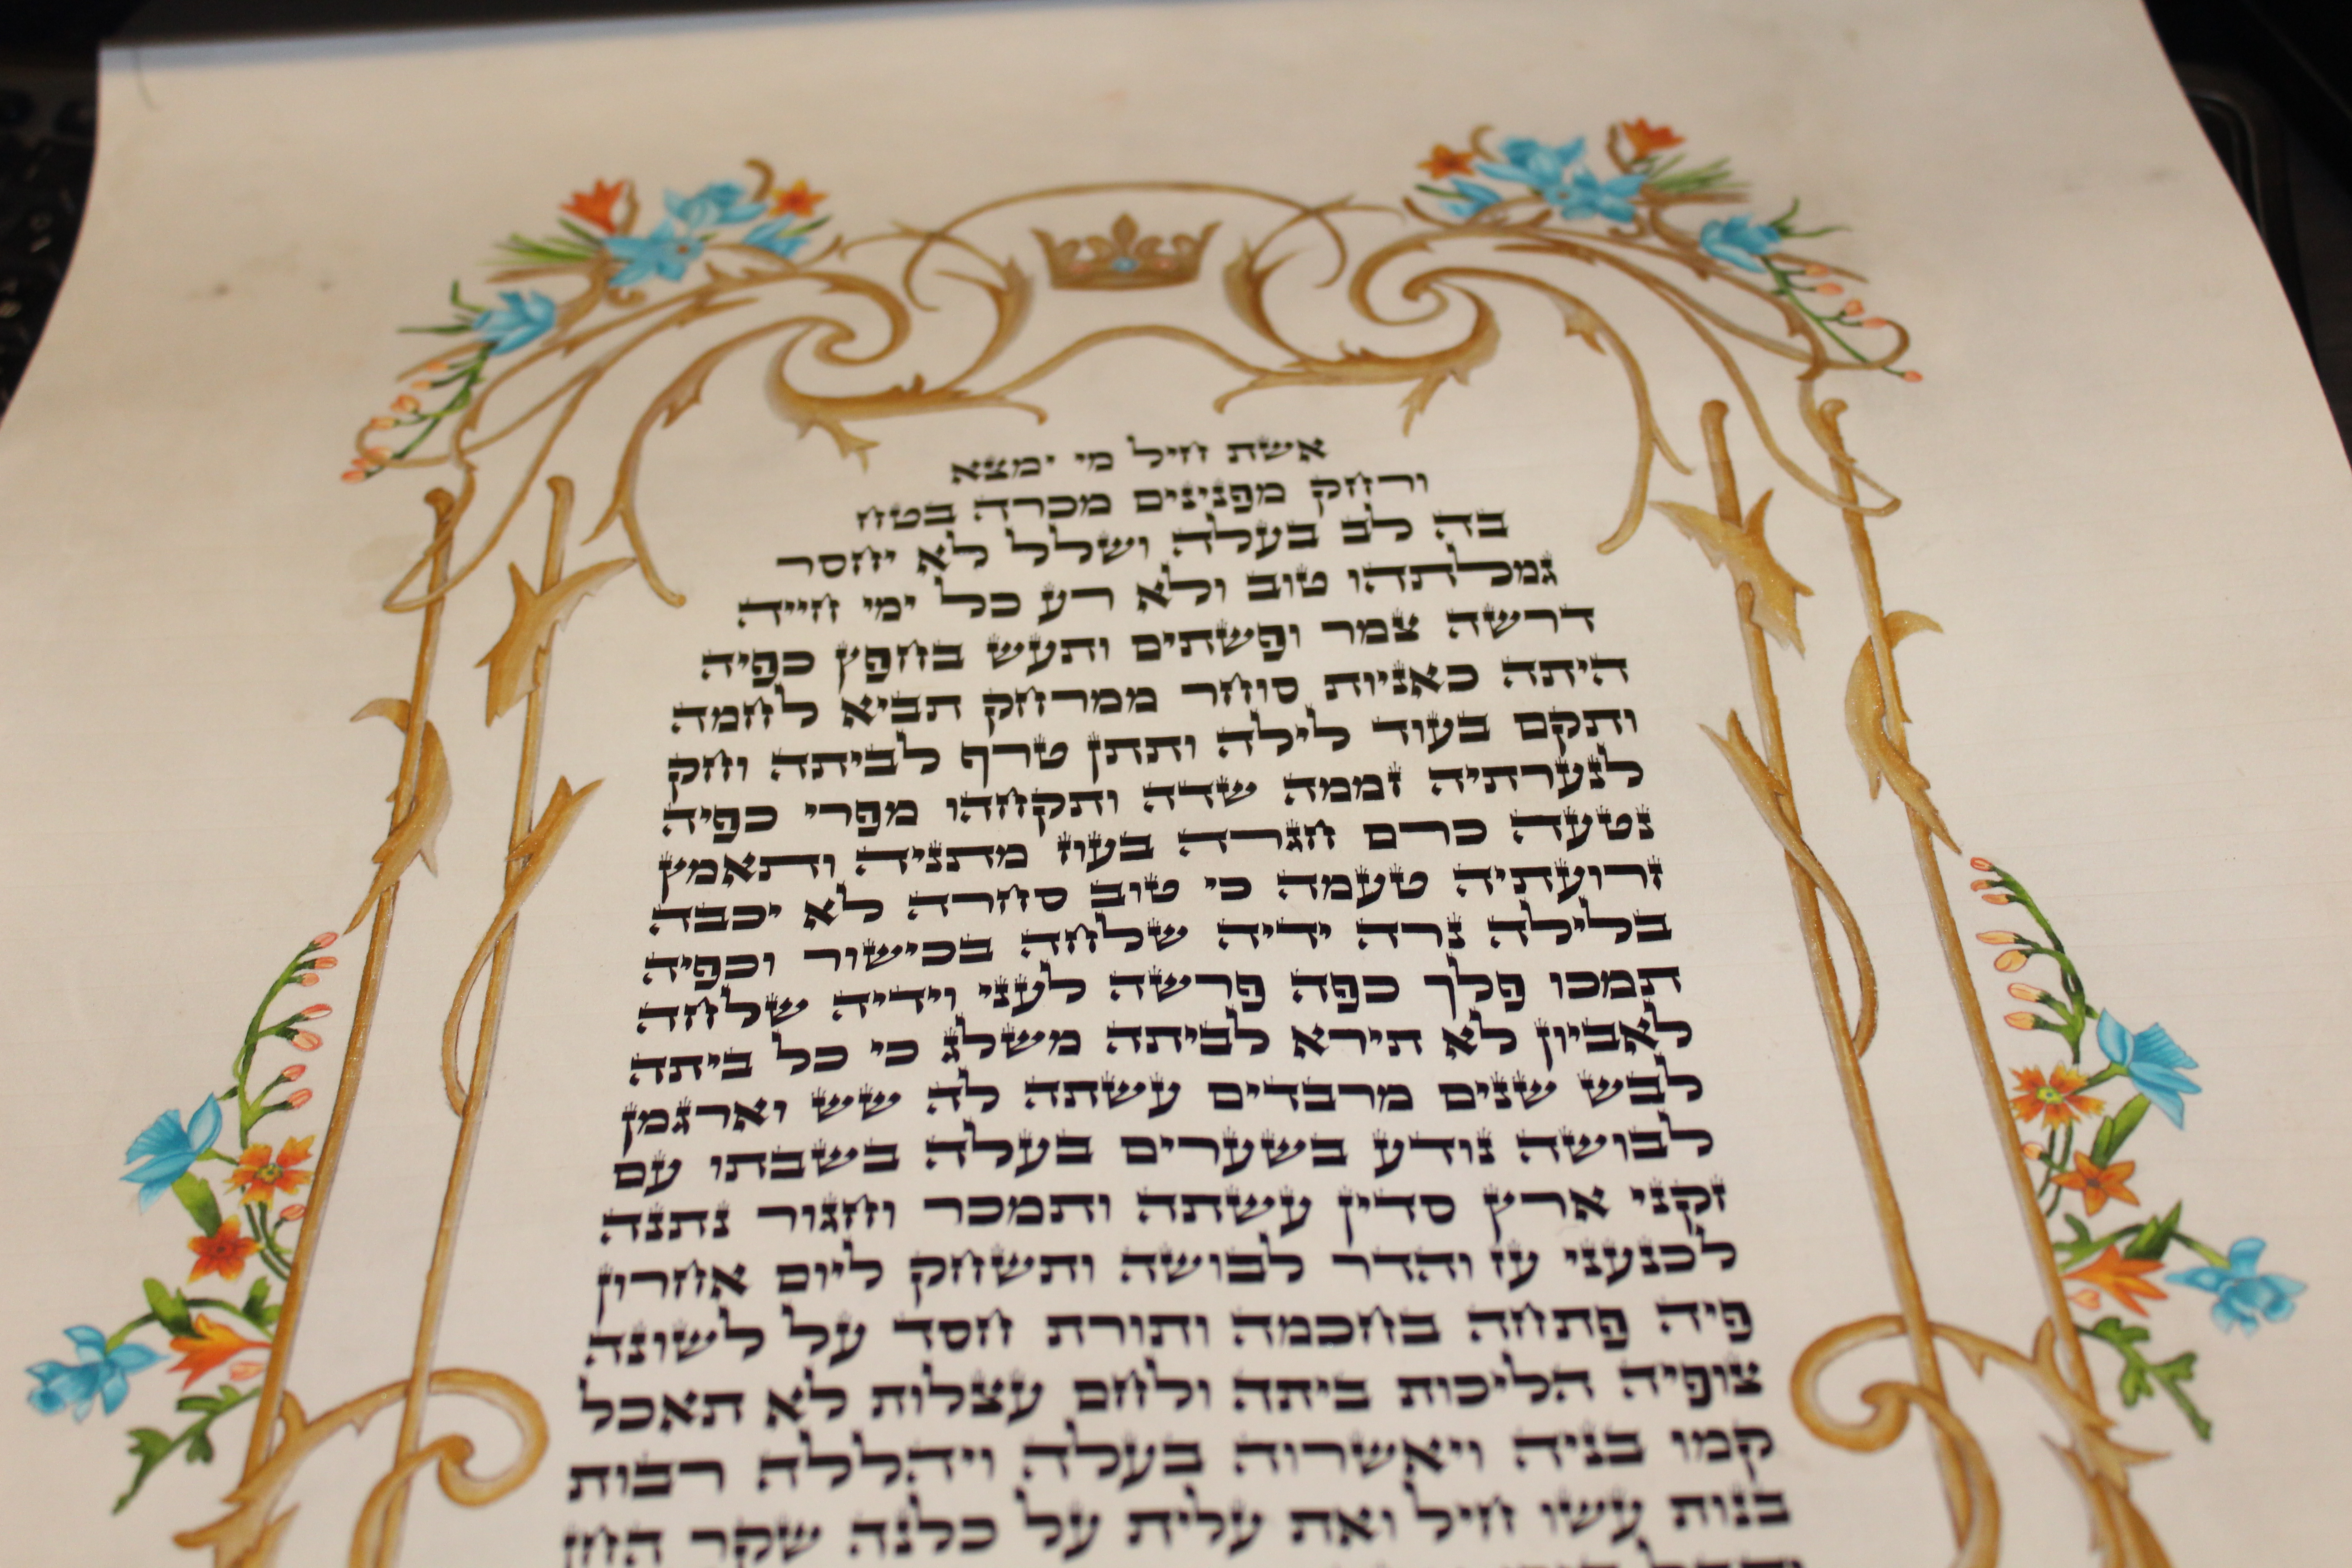 אשת חיל מי ימצא
ורחק מפנינים מכרה בטח
בה לב בעלה ושלל לא יחסר
גמלתהו טוב ולא רע כל ימי חייה
דרשה צמר ופשתים ותעש בחפץ כפיה
היתה כאניות סוחר ממרחק תביא לחמה
ותקם בעוד לילה ותתן טרף לביתה וחק
לנערתיה זממה שדה ותקחהו מפרי כפיה
נטעה כרם חגרה בעוז מתניה ותאמץ
זרועתיה טעמה כי טוב סחרה לא יכבה
בלילה נרה ידיה שלחה בכישור וכפיה
תמכו פלך כפה פרשה לעני וידיה שלחה
לאביון לא תירא לביתה משלג כי כל ביתה
לבש שנים מרבדים עשתה לה שש וארגמן
לבושה נודע בשערים בעלה בשבתו עם
זקני ארץ סדין עשתה ותמכר וחגור נתנה
לכנעני עז והדר לבושה ותשחק ליום אחרון
פיה פתחה בחכמה ותורת חסד על לשונה
צופיה הליכות ביתה ולחם עצלות לא תאכל
קמו בניה ויאשרוה בעלה ויהללה רבות
בנות עשו חיל ואת עלית על כלנה שקר החן